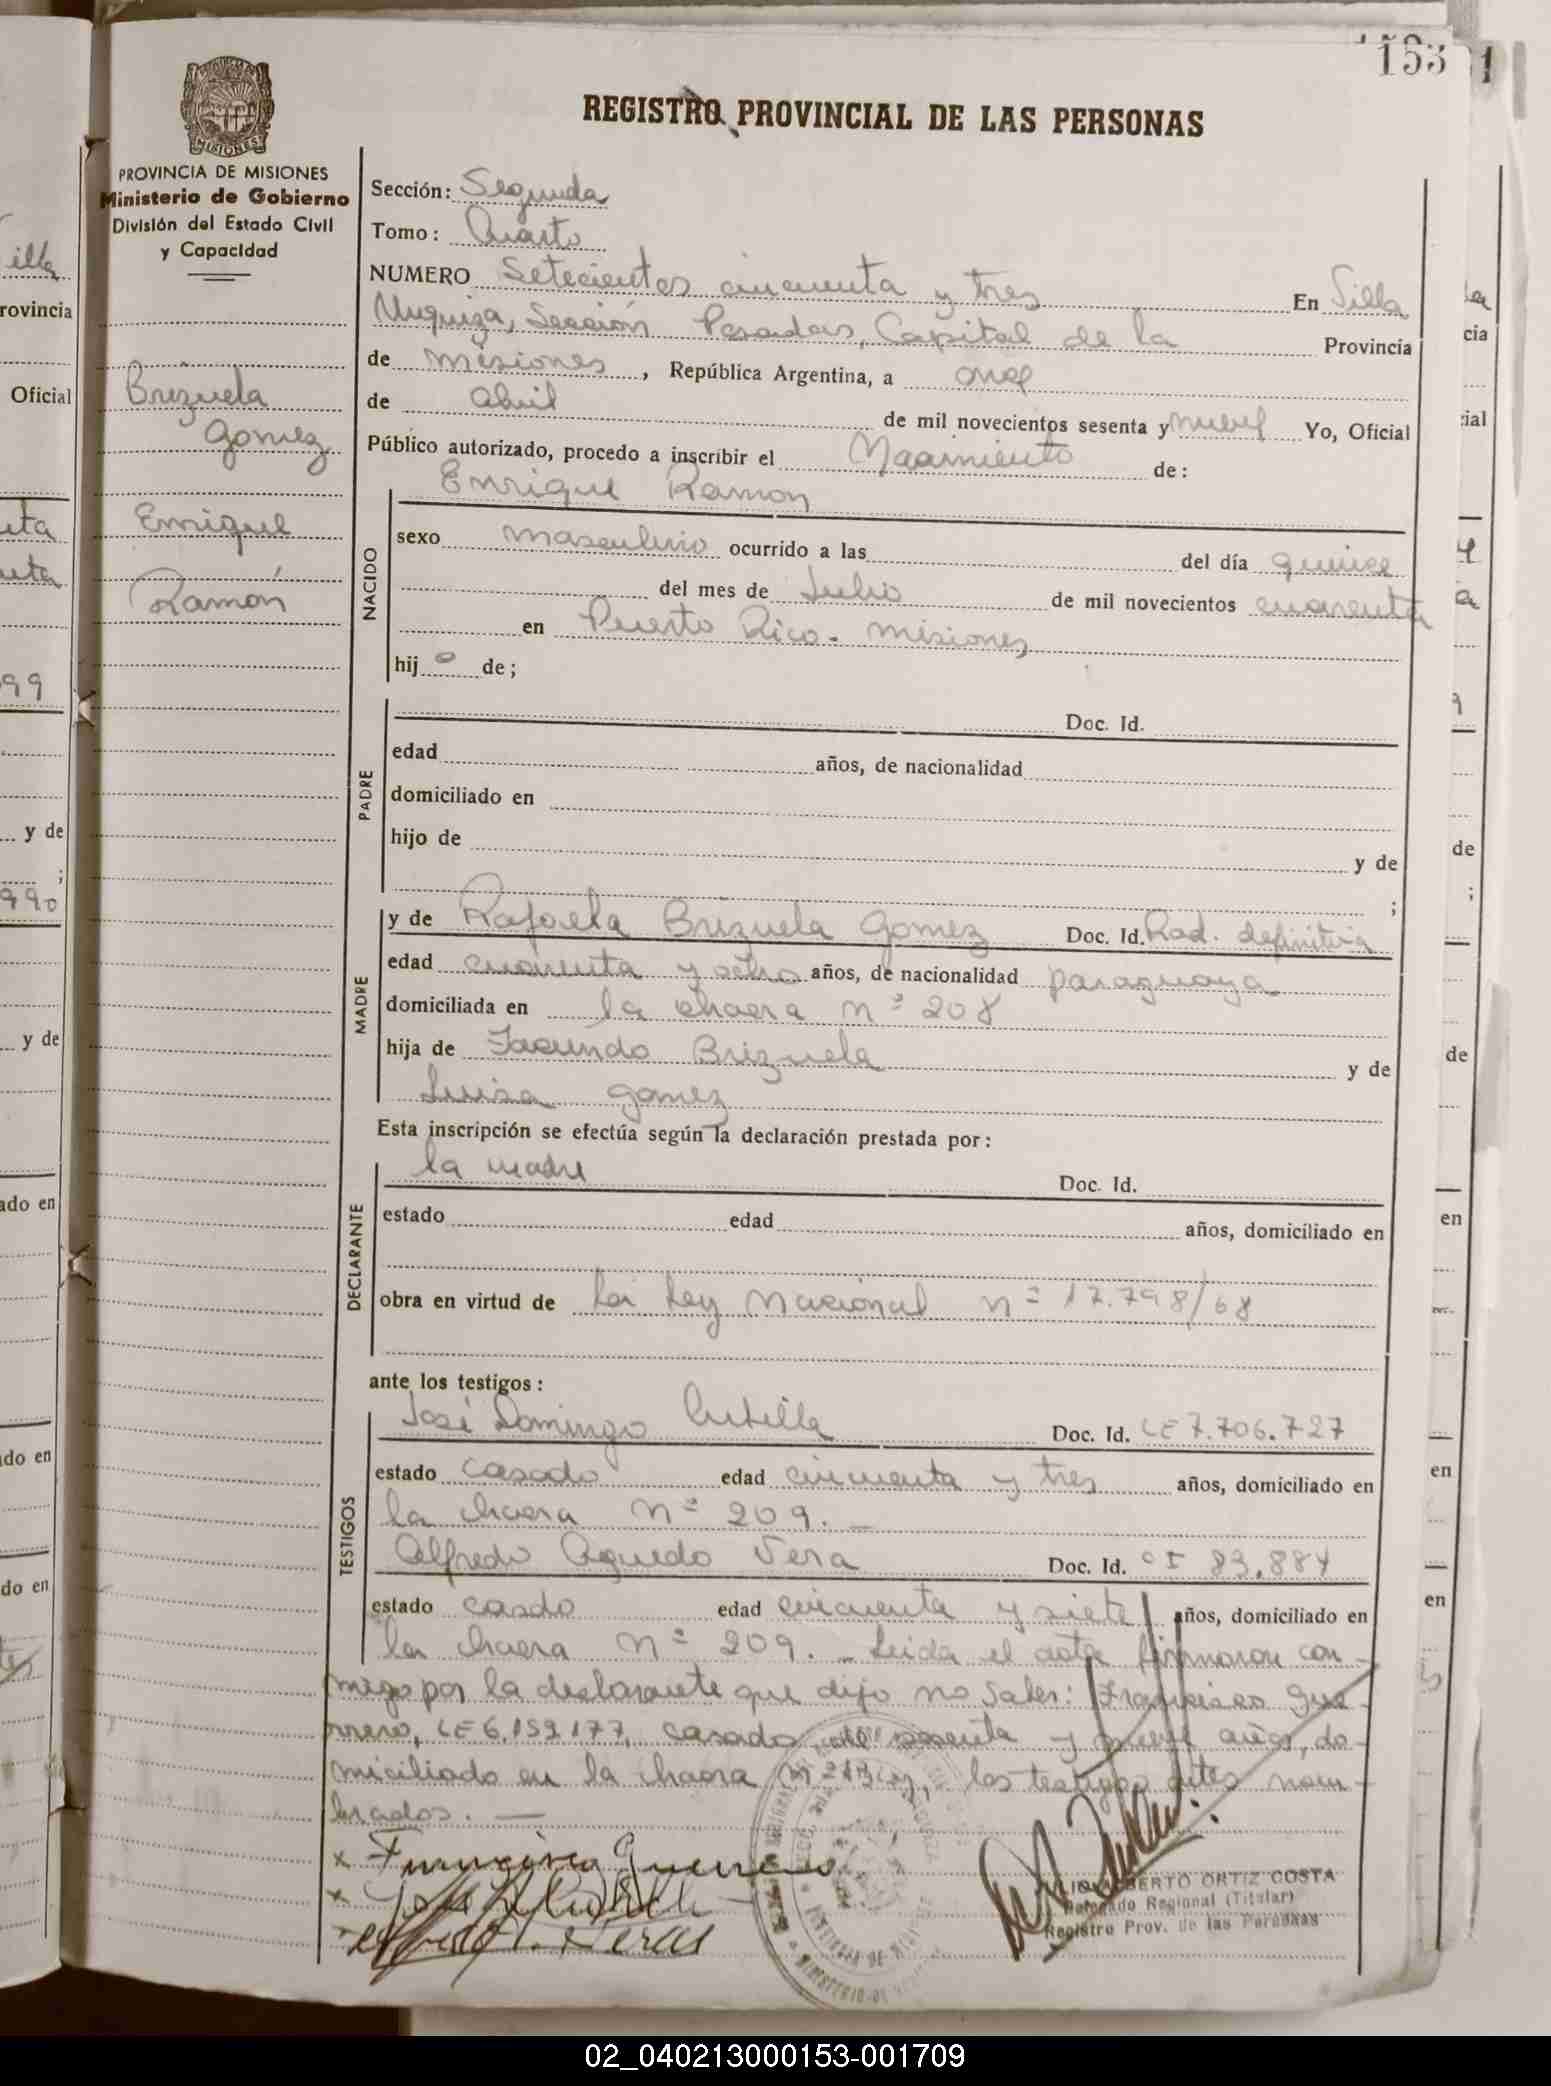 153
REGISTRO PROVINCIAL DE LAS PERSONAS
MISIONES
PROVINCIA DE MISIONES
Ministerio de Gobierno
División del Estado Civil
y Capacidad
Brizuela
Gomez
Enrique
Ramón
Sección: Segunda
Tomo: Cuarto
NUMERO Setecientos cincuenta y tres En Villa
Urquiza, Sección Posadas, Capital de la Provincia
de Misiones, República Argentina, a once
de abril de mil novecientos sesenta y nueve Yo, Oficial
Público autorizado, procedo a inscribir el Nacimiento de:
Enrique Ramon
NACIDO
sexo masculino ocurrido a las del día quince
del mes de Julio de mil novecientos cuarenta
en Puerto Rico - misiones
hij o de;
PADRE
Doc. Id.
edad años, de nacionalidad
domiciliado en
hijo de y de
;
MADRE
y de Rafaela Brizuela Gomez Doc. Id. Rad. definitiva
edad cuarenta y ocho años, de nacionalidad paraguaya
domiciliada en la chacra nº 208
hija de Facundo Brizuela y de
Luisa Gomez
Esta inscripción se efectúa según la declaración prestada por:
DECLARANTE
la madre Doc. Id.
estado edad años, domiciliado en
obra en virtud de La Ley Nacional nº 17.798/68
ante los testigos:
TESTIGOS
José Domingo Doc. Id. LE 7.706.727
estado casado edad cincuenta y tres años, domiciliado en
la chacra nº 209. _
Alfredo Aguedo Vera Doc. Id. CI 83.884
estado casdo edad cincuenta y siete años, domiciliado en
la chacra nº 209. _ Leida el acta firmaron con-
migo por la declarante que dijo no saber: Francisco Gue-
rrero, LE 6.159.177, casado, de sesenta y nueve años, do-
miciliado en la chacra los testigos antes nom-
brados. —
x Francisco Guerrero
x
x Alfredo A. Vera
JULIO ALBERTO ORTIZ COSTA
Delegado Regional (Titular)
Registro Prov. de las Personas
02_040213000153-001709